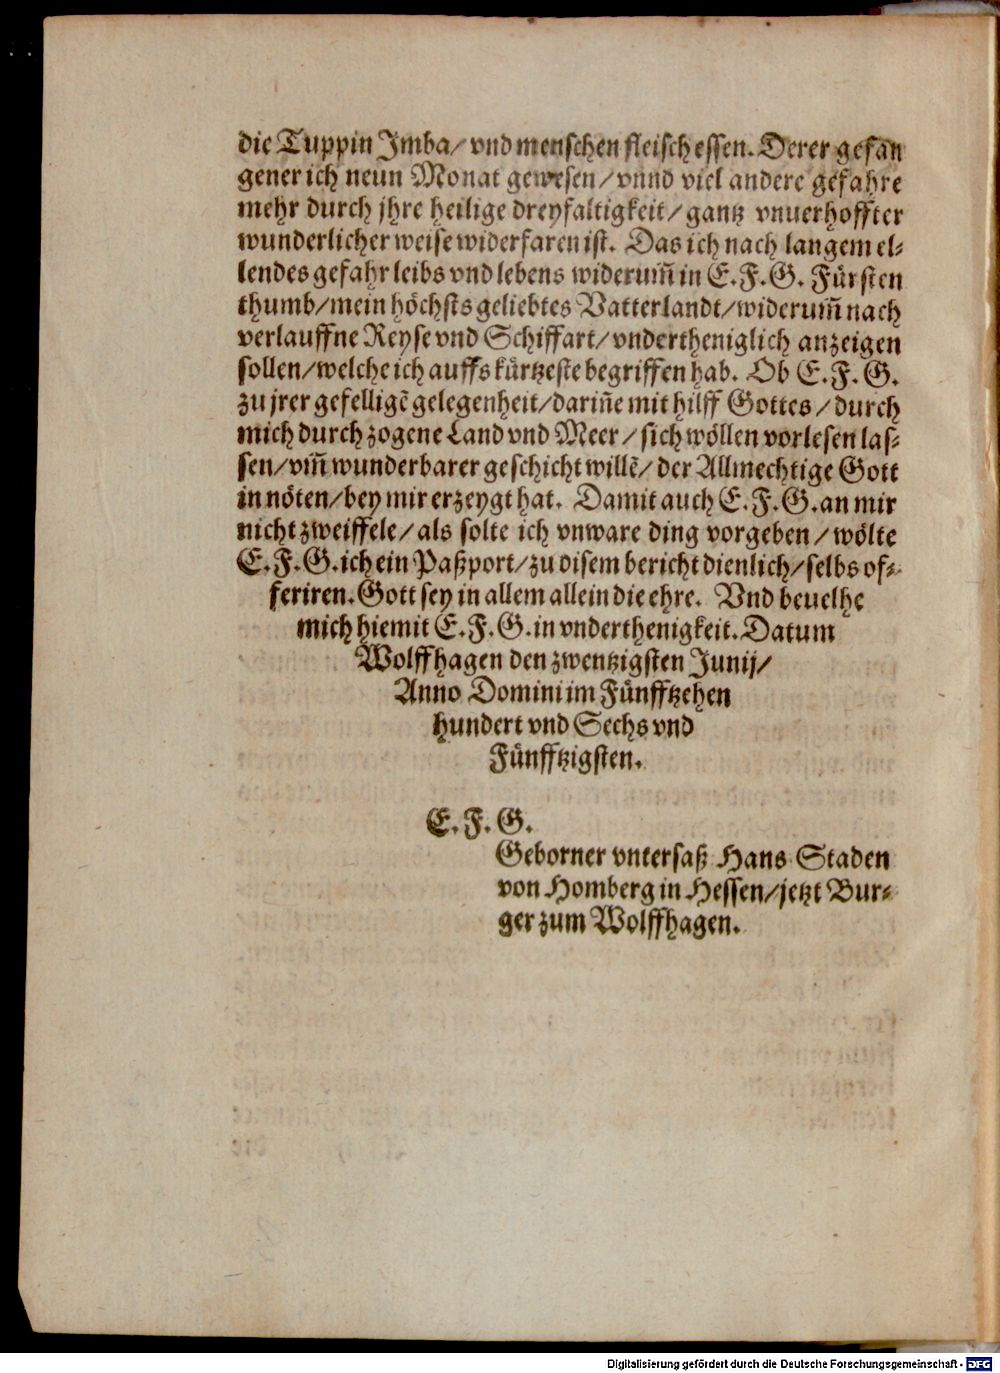 die Tuppin Jmba/ vnd menschen fleisch essen. Derer gefan
gener ich neun Monat gewesen/ vnnd viel andere gefahre
mehr durch jhre heilige dreyfaltigkeit/ gantz vnuerhoffter
wunderlicher weise widerfaren ist. Das ich nach langem el-
lendes gefahr leibs vnd lebens widerum̃ in E. F. G. Fürsten
thumb/ mein höchsts geliebtes Vatterlandt/ widerum̃ nach
verlauffne Reyse vnd Schiffart/ vndertheniglich anzeigen
sollen/ welche ich auffs kürtzeste begriffen hab. Ob E. F. G.
zu jrer gefelligẽ gelegenheit/ dariñe mit hilff Gottes/ durch
mich durch zogene Land vnd Meer/ sich wöllen vorlesen las-
sen/ vm̃ wunderbarer geschicht willẽ/ der Allmechtige Gott
in nöten/ bey mir erzeygt hat. Damit auch E. F. G. an mir
nicht zweiffele/ als solte ich vnware ding vorgeben/ wölte
E. F. G. ich ein Paßport/ zu disem bericht dienlich/ selbs of-
feriren. Gott sey in allem allein die ehre. Vnd beuelhe
mich hiemit E. F. G. in vnderthenigkeit. Datum
Wolffhagen den zwentzigsten Junij/
Anno Domini im Fünfftzehen
hundert vnd Sechs vnd
Fünfftzigsten.
E. F. G.
Geborner vntersaß Hans Staden
von Homberg in Hessen/ jetzt Bur-
ger zum Wolffhagen.
Digitalisierung gefördert durch die Deutsche Forschungsgemeinschaft - DFG